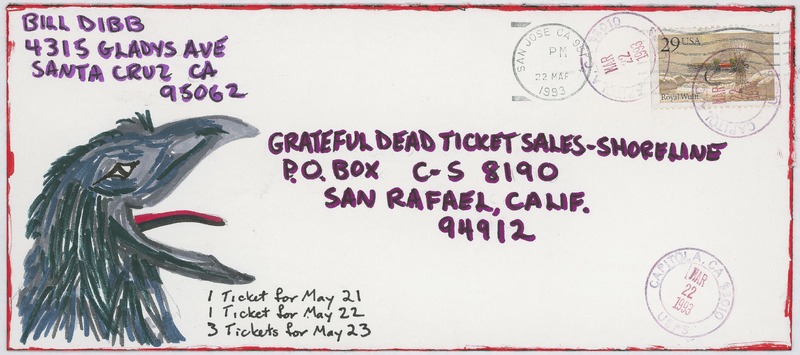 BILL DIBB
4315 GLADYS AVE
SANTA CRUZ CA
95062
SAN JOSE CA
PM
22 MAR
1993
MAR
22
1993
29 USA
Royal Wulff
GRATEFUL DEAD TICKET SALES-SHORELINE
P.O. BOX C-S 8190
SAN RAFAEL, CALIF.
94912
CAPITOLA, CA 95010
MAR
22
1993
USPS
1 Ticket for May 21
1 Ticket for May 22
3 Tickets for May 23